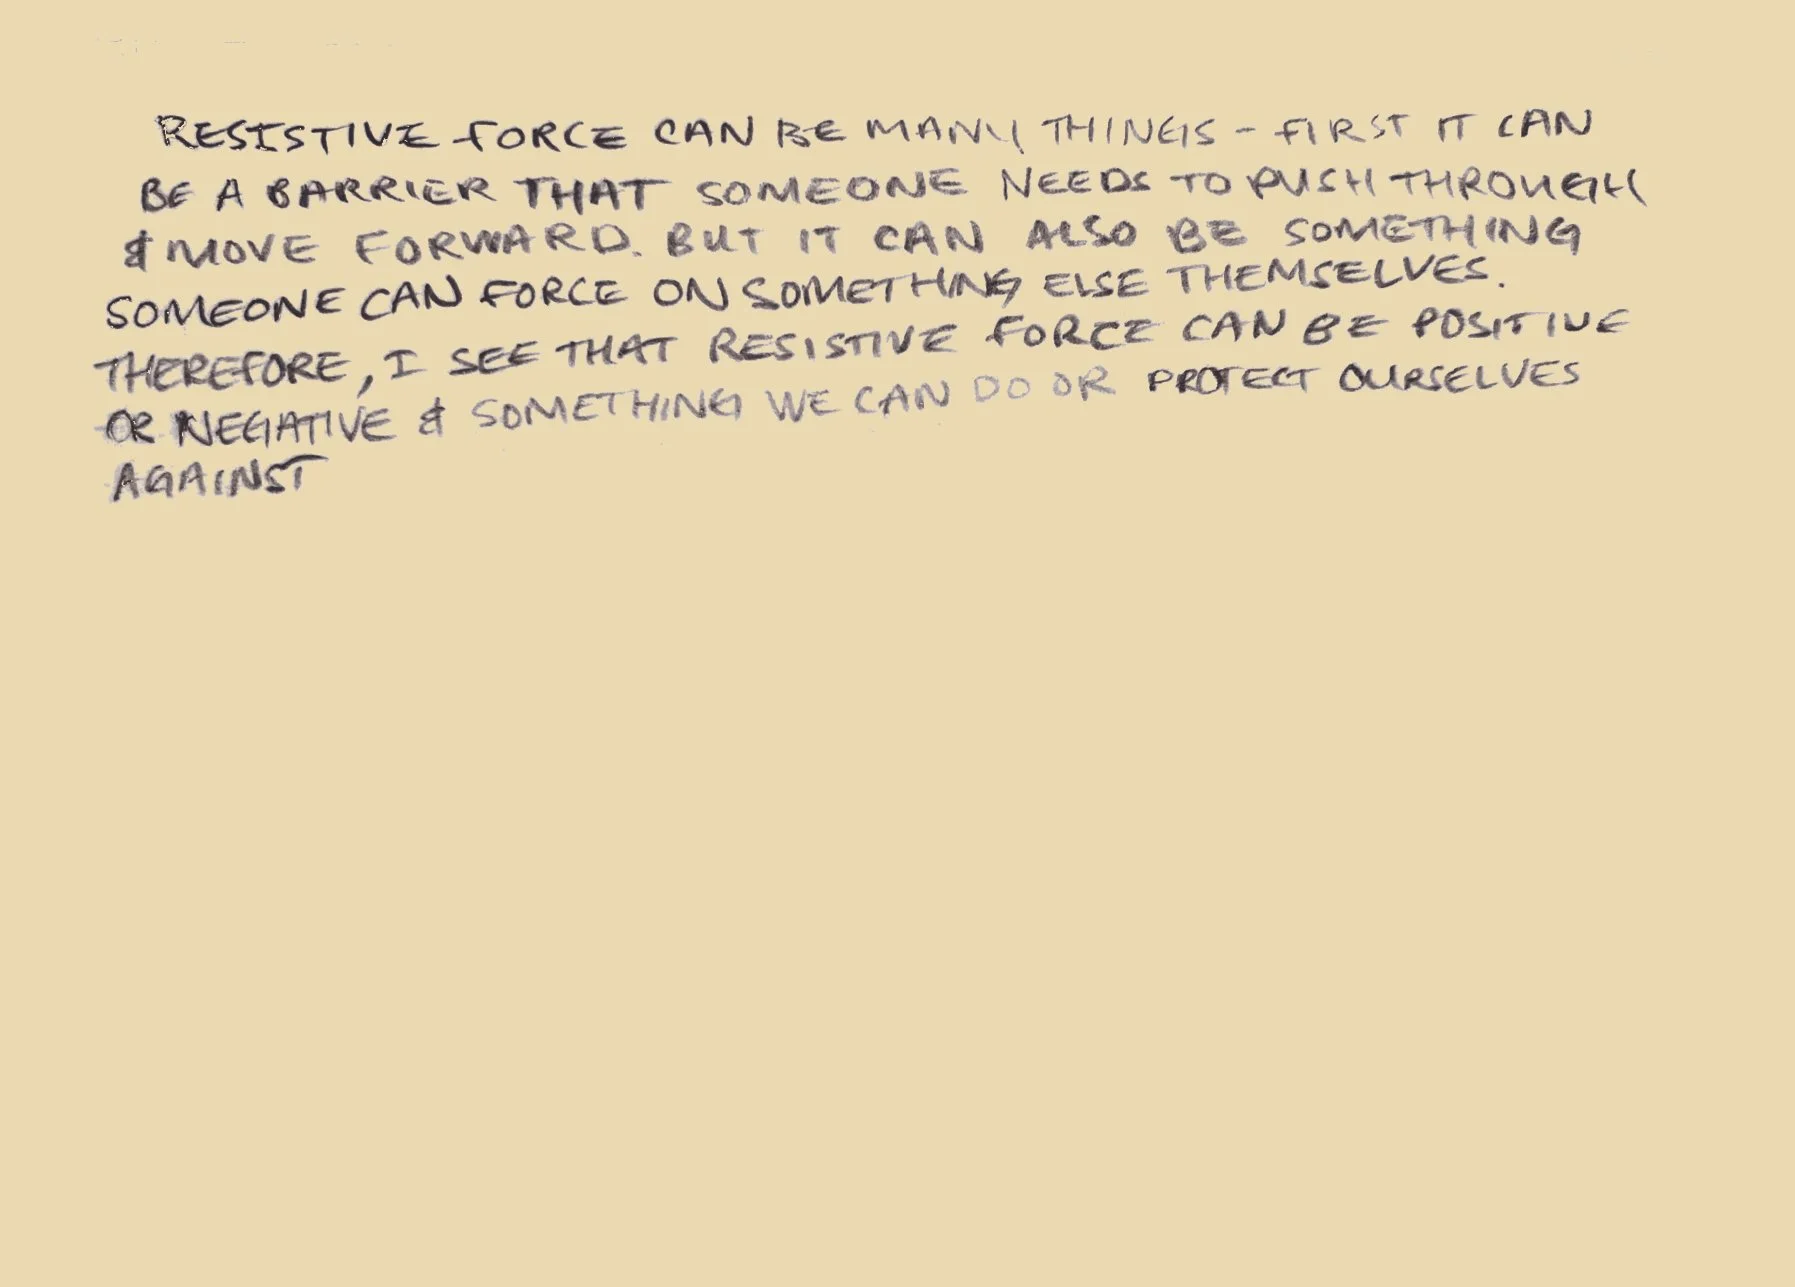 RESISTIVE FORCE CAN BE MANY THINGS - FIRST IT CAN
BE A BARRIER THAT SOMEONE NEEDS TO PUSH THROUGH
& MOVE FORWARD. BUT IT CAN ALSO BE SOMETHING
SOMEONE CAN FORCE ON SOMETHING ELSE THEMSELVES.
THEREFORE, I SEE THAT RESISTIVE FORCE CAN BE POSITIVE
OR NEGATIVE & SOMETHING WE CAN DO OR PROTECT OURSELVES
AGAINST